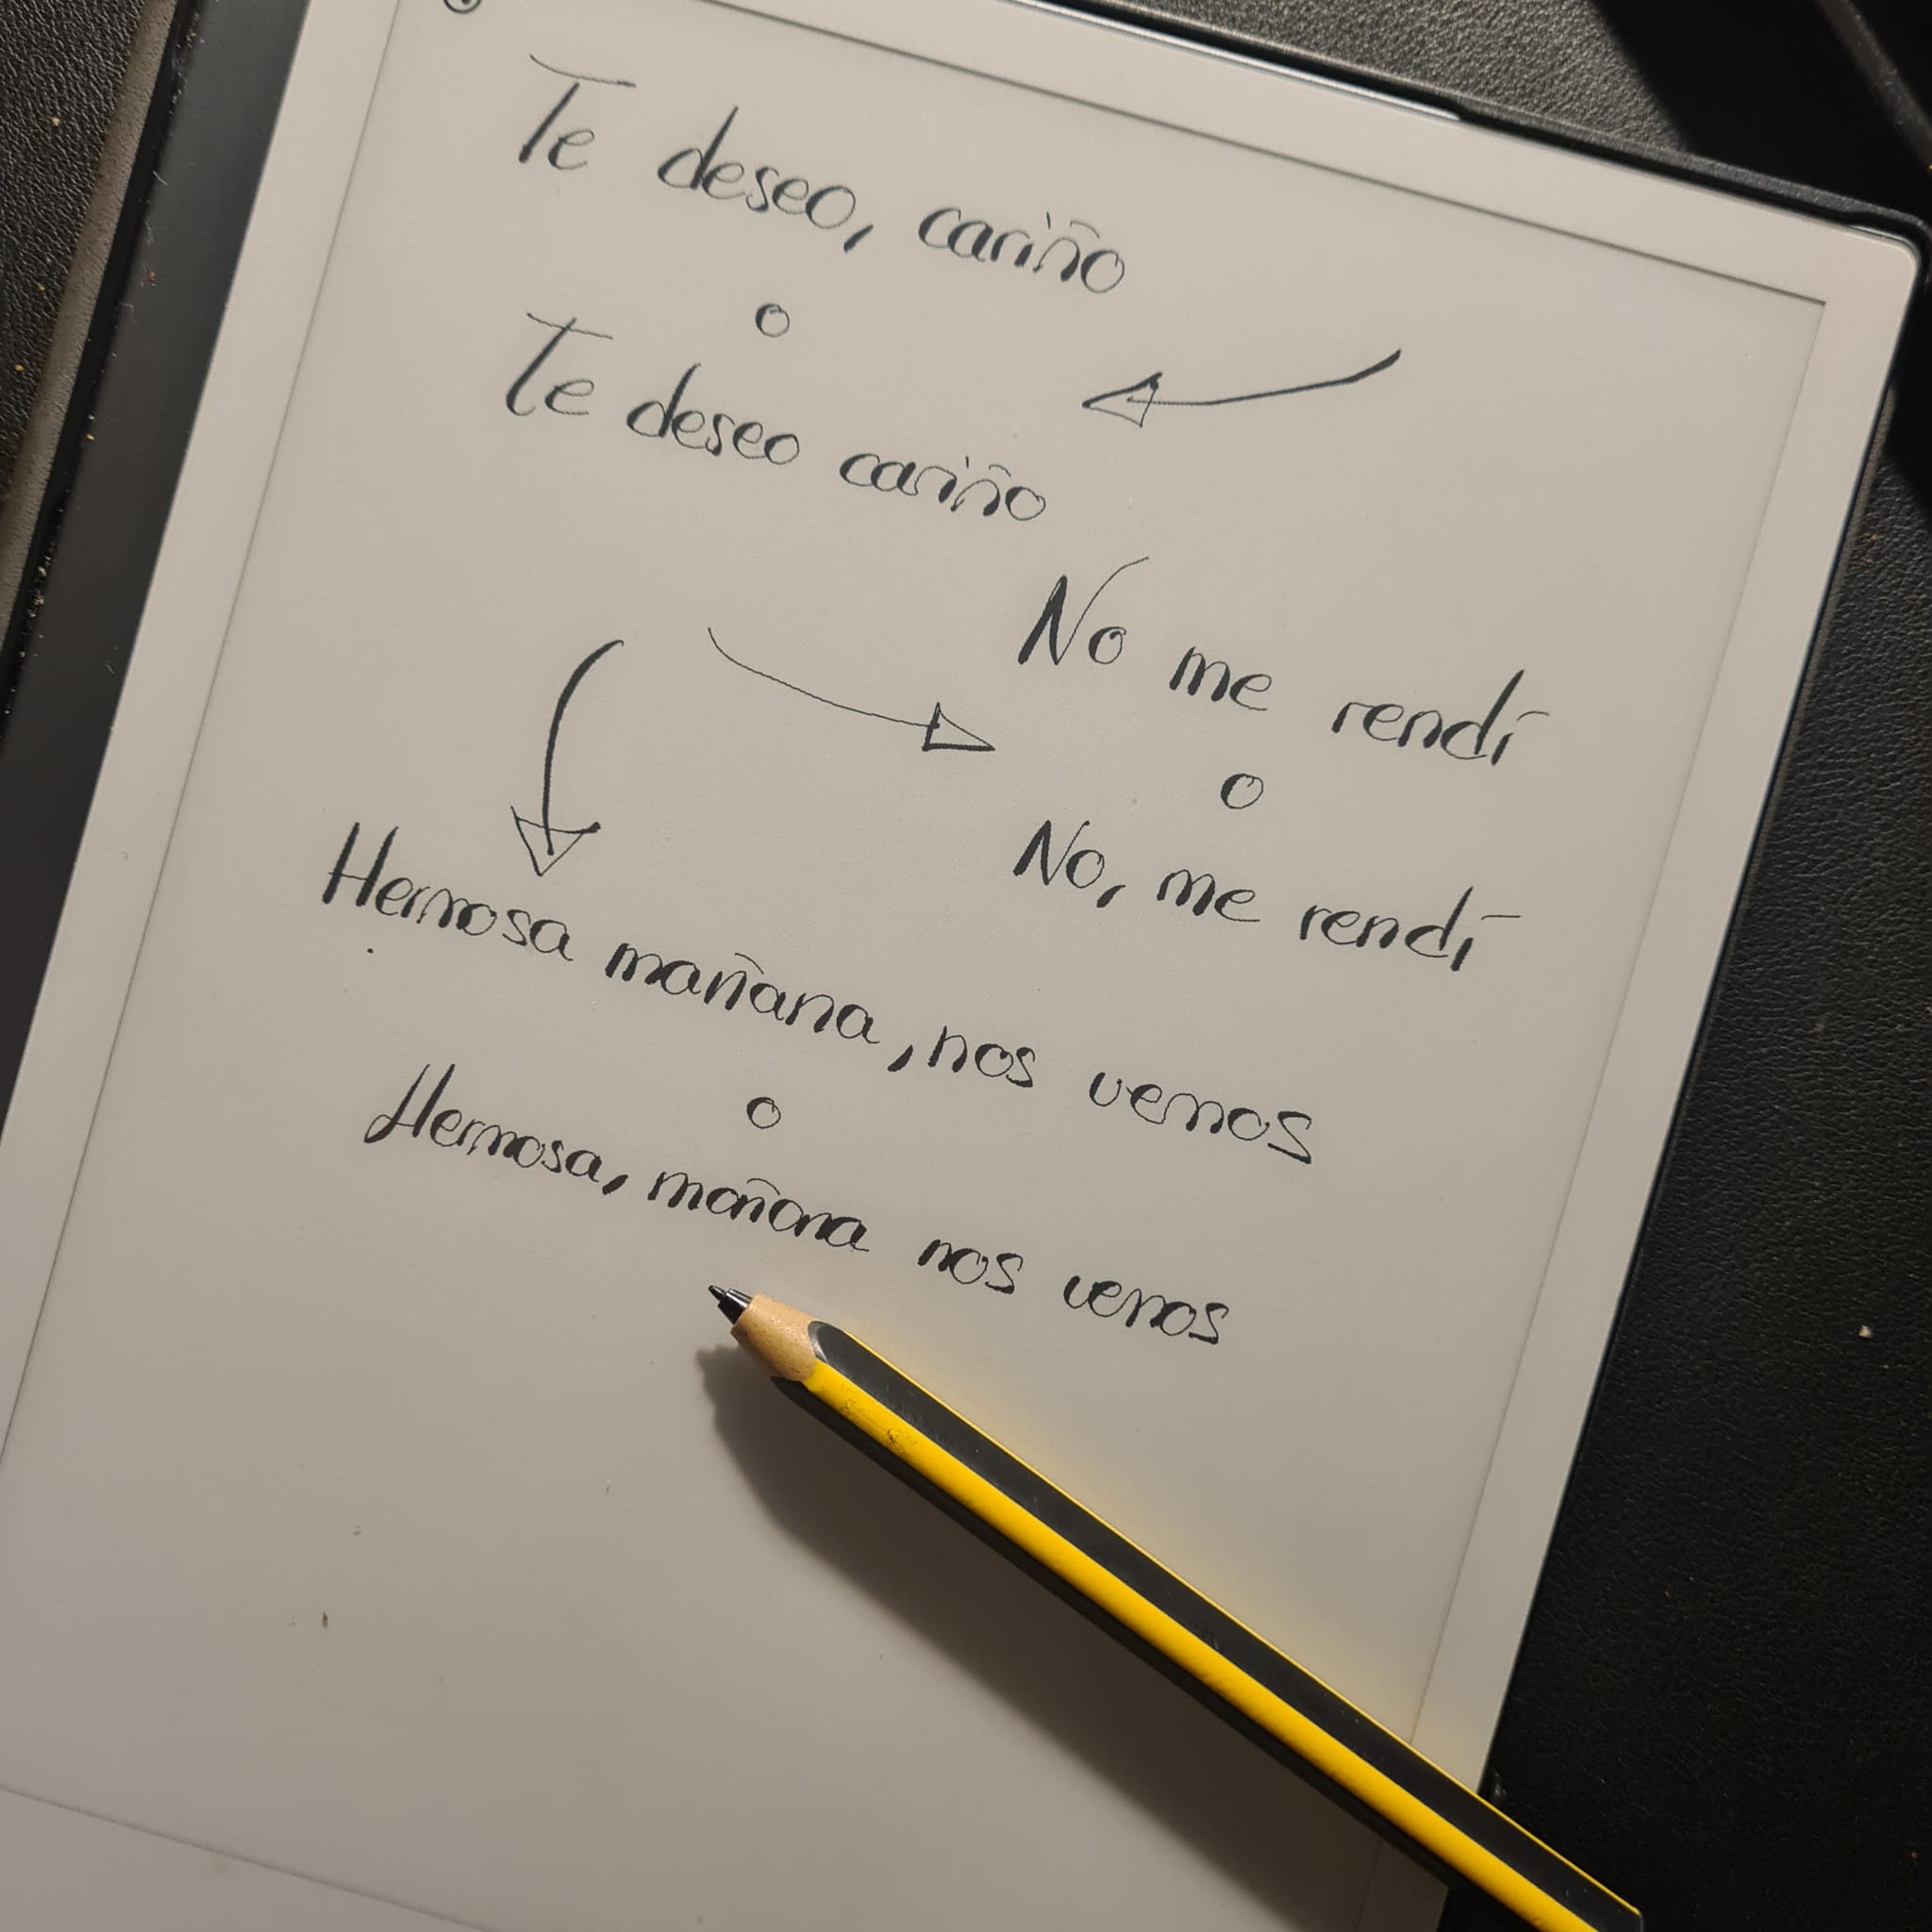 Te deseo, cariño
o
Te deseo cariño
No me rendí
o
No, me rendí
Hermosa mañana, nos vemos
o
Hermosa, mañana nos vemos